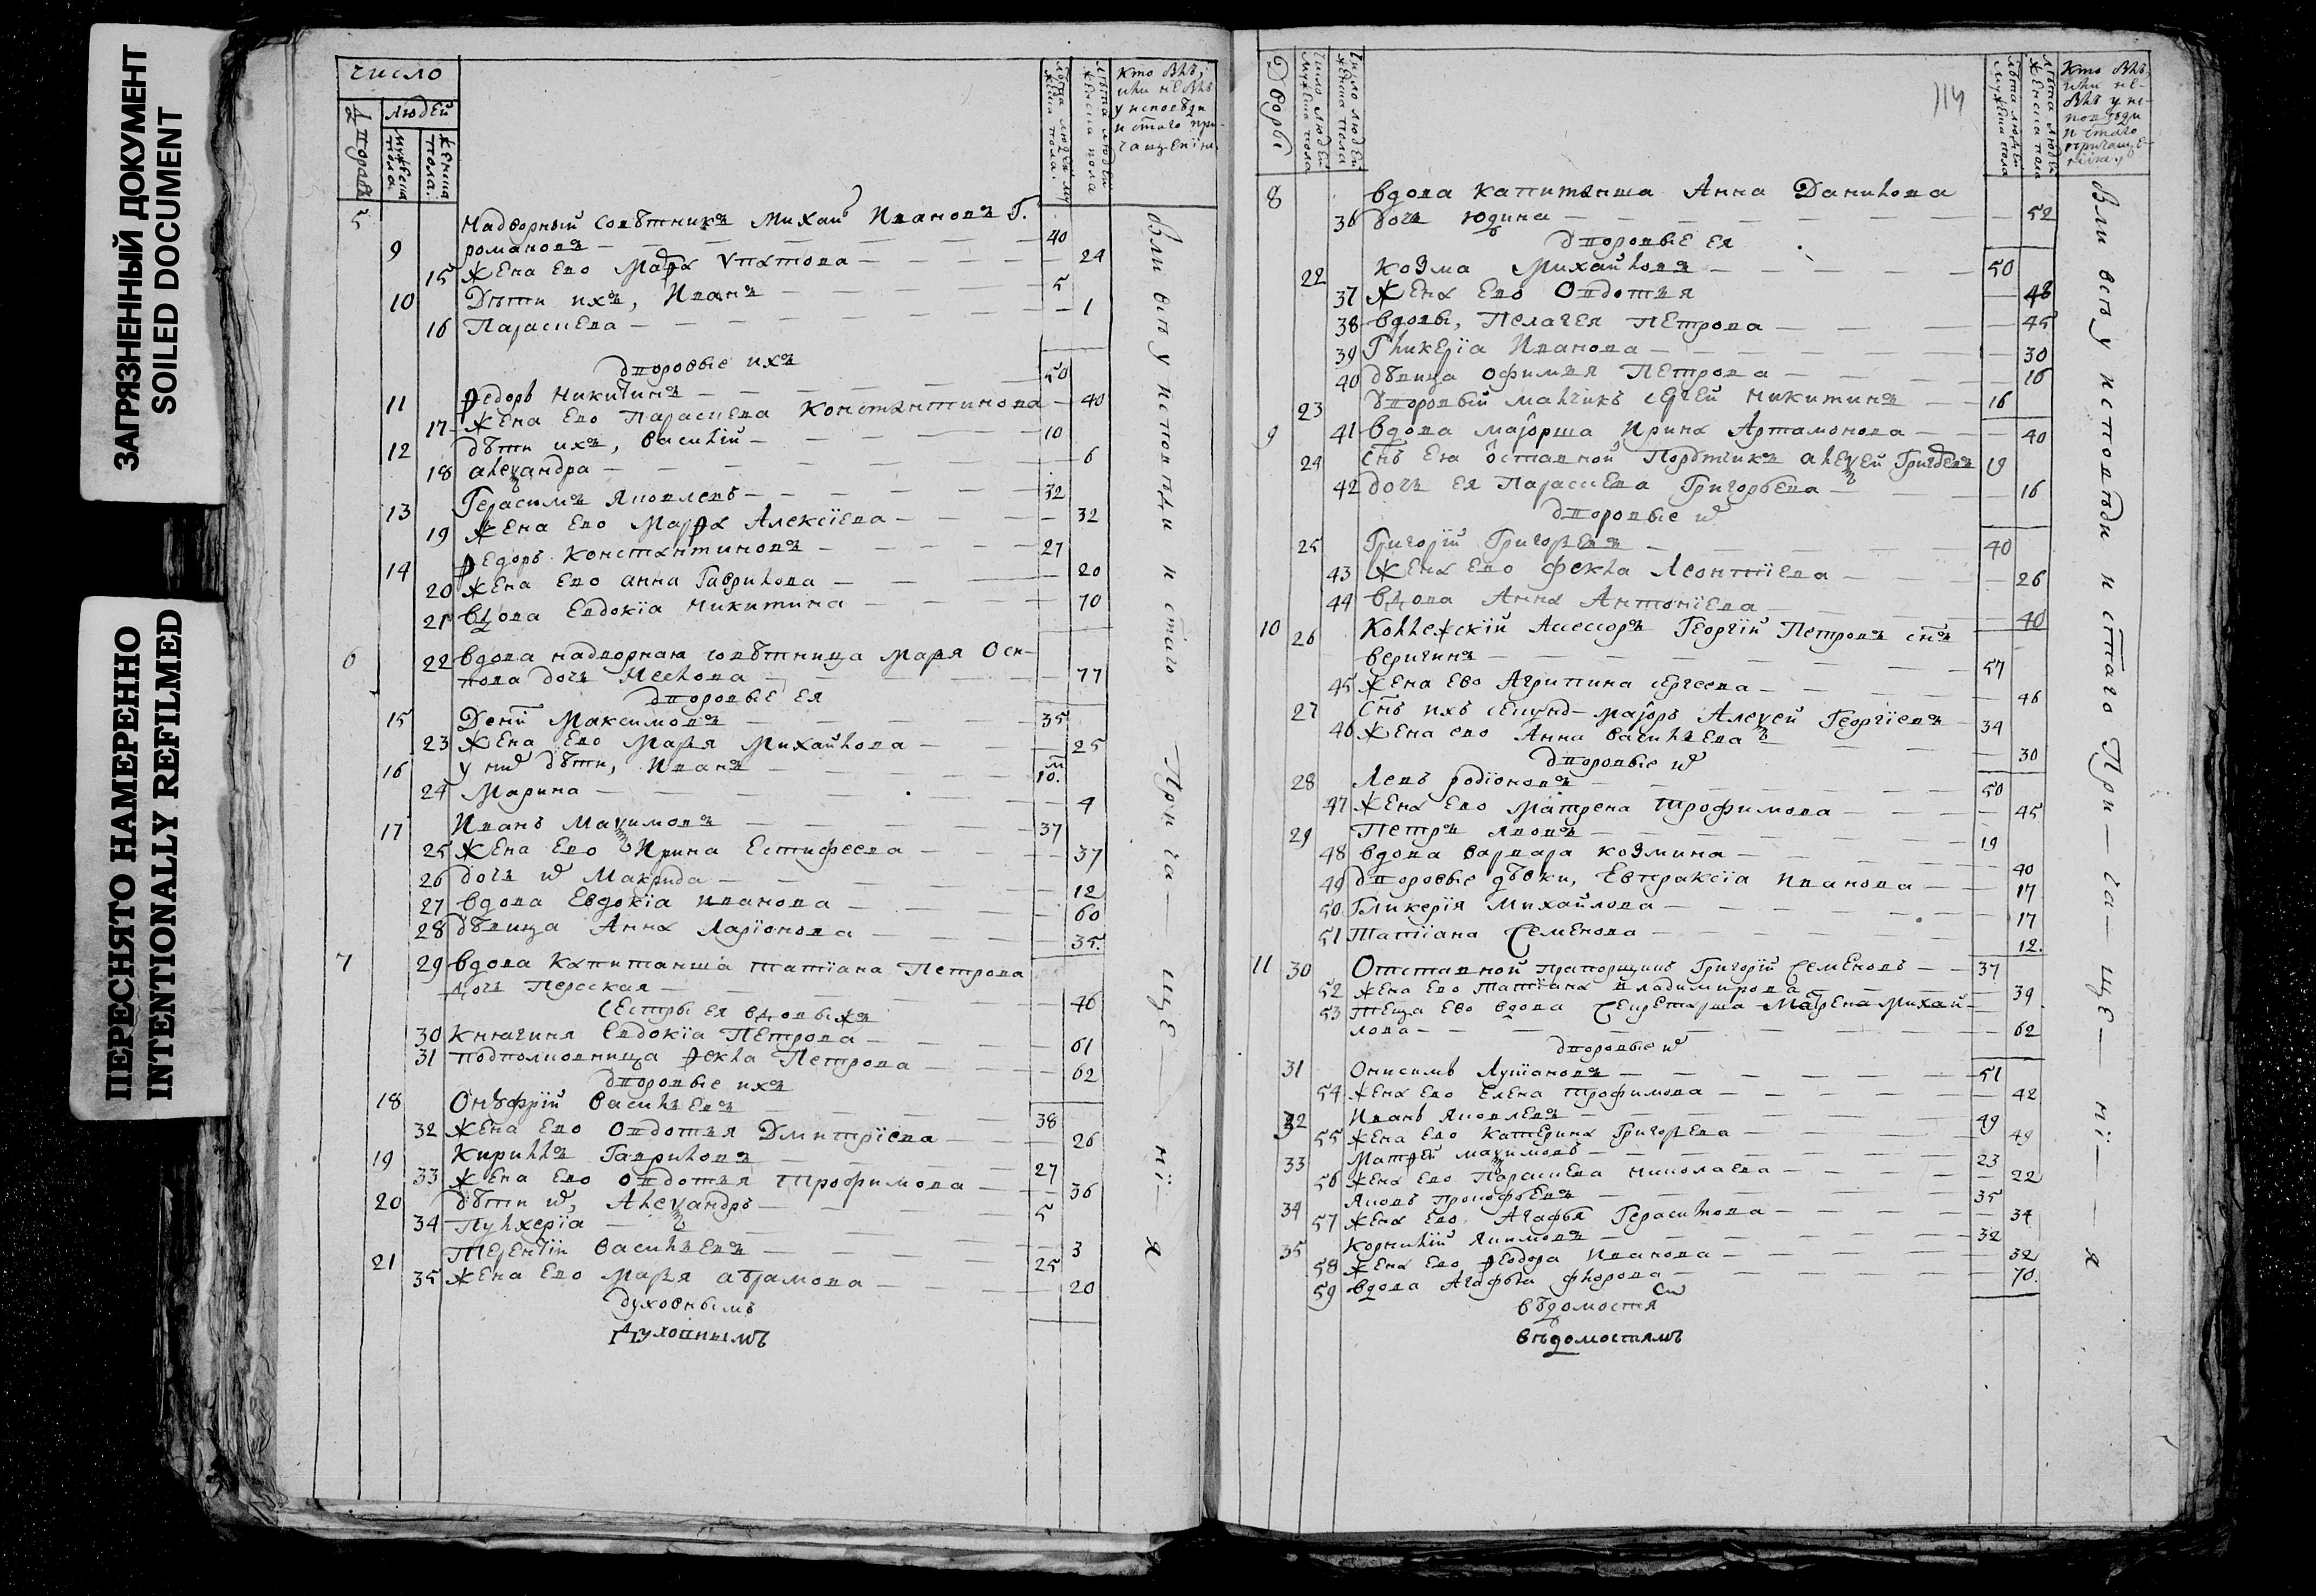 ЗАГРЯЗНЕННЫЙ ДОКУМЕНТ
SOILED DOCUMENT
ПЕРЕСНЯТО НАМЕРЕННО
INTENTIONALLY REFILMED
число
людей
мужеска пола
женска пола.
кто былъ,
или не былъ
у исповѣди
и стаго при-
чащенiя
5 Надворный совѣтникъ Михаилъ Ивановъ
9 романовъ 40
15 жена ево Марѳа 24
10 Дѣти ихъ, Иванъ 5
16 Парасцева 1
дворовые ихъ
11 Ѳедоръ Никитинъ 50
17 жена ево Парасцева Константинова 40
12 дѣти ихъ, Василiй 10
18 алеѯандра 6
13 Герасимъ Яковлевъ 32
19 жена ево Марѳа Алексiева 32
14 Ѳедоръ Константиновъ 27
20 жена ево анна Гаврилова 20
21 вдова Евдокiа Никитина 70
6 22 вдова надворная совѣтница Марья Оси-
пова дочь 77
дворовые ея
15 Максимовъ 35
23 жена ево Марья Михайлова 25
16 у нихъ дѣти, Иванъ 10.
24 Марина 4
17 Иванъ Маѯимовъ 37
25 жена ево Ирина Естифеева 37
26 дочь их Макрида 12
27 вдова Евдокiа иванова 60
28 дѣвица Анна Ларiонова 35.
7 29 вдова Капитанша татiана Петрова
дочь 46
сестры ея вдовыжъ
30 княгиня Евдокiа Петрова 61
31 подполковница Ѳекла Петрова 62
дворовые ихъ
18 Онѣфрiй Васильевъ 38
32 жена ево Овдотья Дмитрiева 26
19 Кирилъ Гавриловъ 27
33 жена ево Овдотья трофимова 36
20 дѣти их, Алеѯандръ 5
34 Пулхерiа 3
21 Терентiй Васильевъ 25
35 жена ево Марья абрамова 20
духовнымъ
Духовнымъ
Были оны у исповѣди и стаго Прича-ще-нi-я
114
Дворы
число людей мужеска пола
число людей женска пола
лѣта людей мужеска пола
лѣта людей женска пола
Кто былъ
или не-
былъ у ис-
повѣди
и стаго
причаще-
нiя
8 вдова капитанша Анна Данилова
36 дочь Юдина 52
дворовые ея
22 Козма Михайловъ 50
37 жена ево Овдотья 48
38 вдовы, Пелагея Петрова 45
39 Гликерiа Иванова 30
40 дѣвица офимья Петрова 16
23 дворовый малчикъ сергей никитинъ 16
9 41 вдова маiорша Ирина Артамонова 40
24 снъ ея оставной Порутчикъ алеѯей Григорьевъ 19
42 дочь ея Парасцева Григорьева 16
дворовые их
25 Григорiй Григорьевъ 40
43 жена ево фекла Леонтiева 26
44 вдова Анна Антонiева 40
10 26 Коллежскiй Ассессоръ Георгiй Петровъ снъ
веригинъ 57
45 жена ево Агрипина сергеева 46
27 снъ ихъ секунд-маiоръ Алеѯей Георгiевъ 34
46 жена ево Анна Васильева 30
дворовые их
28 Левъ родiоновъ 50
47 жена ево матрена трофимова 45
29 Петръ львовъ 19
48 вдова варвара козмина 40
49 дворовые дѣвки, Евпраксiа иванова 17
50 Гликерiя Михайлова 17
51 Татiана Семенова 12.
11 30 Отставной прапорщикъ Григорiй Семеновъ 37
52 жена ево татiана владимирова 39
53 теща ево вдова Секретарша Михай-
лова 62
дворовые их
31 Онисимъ 51
54 жена ево Елена трофимова 42
32 Иванъ Яковлевъ 49
55 жена ево Катерина Григорьева 49
33 Матвей маѯимовъ 23
56 жена ево Парасцева николаева 22
34 Яковъ прокофьевъ 35
57 жена ево Агафья Герасимова 34
35 Корнилiй Якимовъ 32
58 жена ево Ѳеодора иванова 32
59 вдова Агафья флорова 70.
вѣдомостя
вѣдомостямъ
Были всѣ у исповѣди и стаго При-ча-ще-нi-я